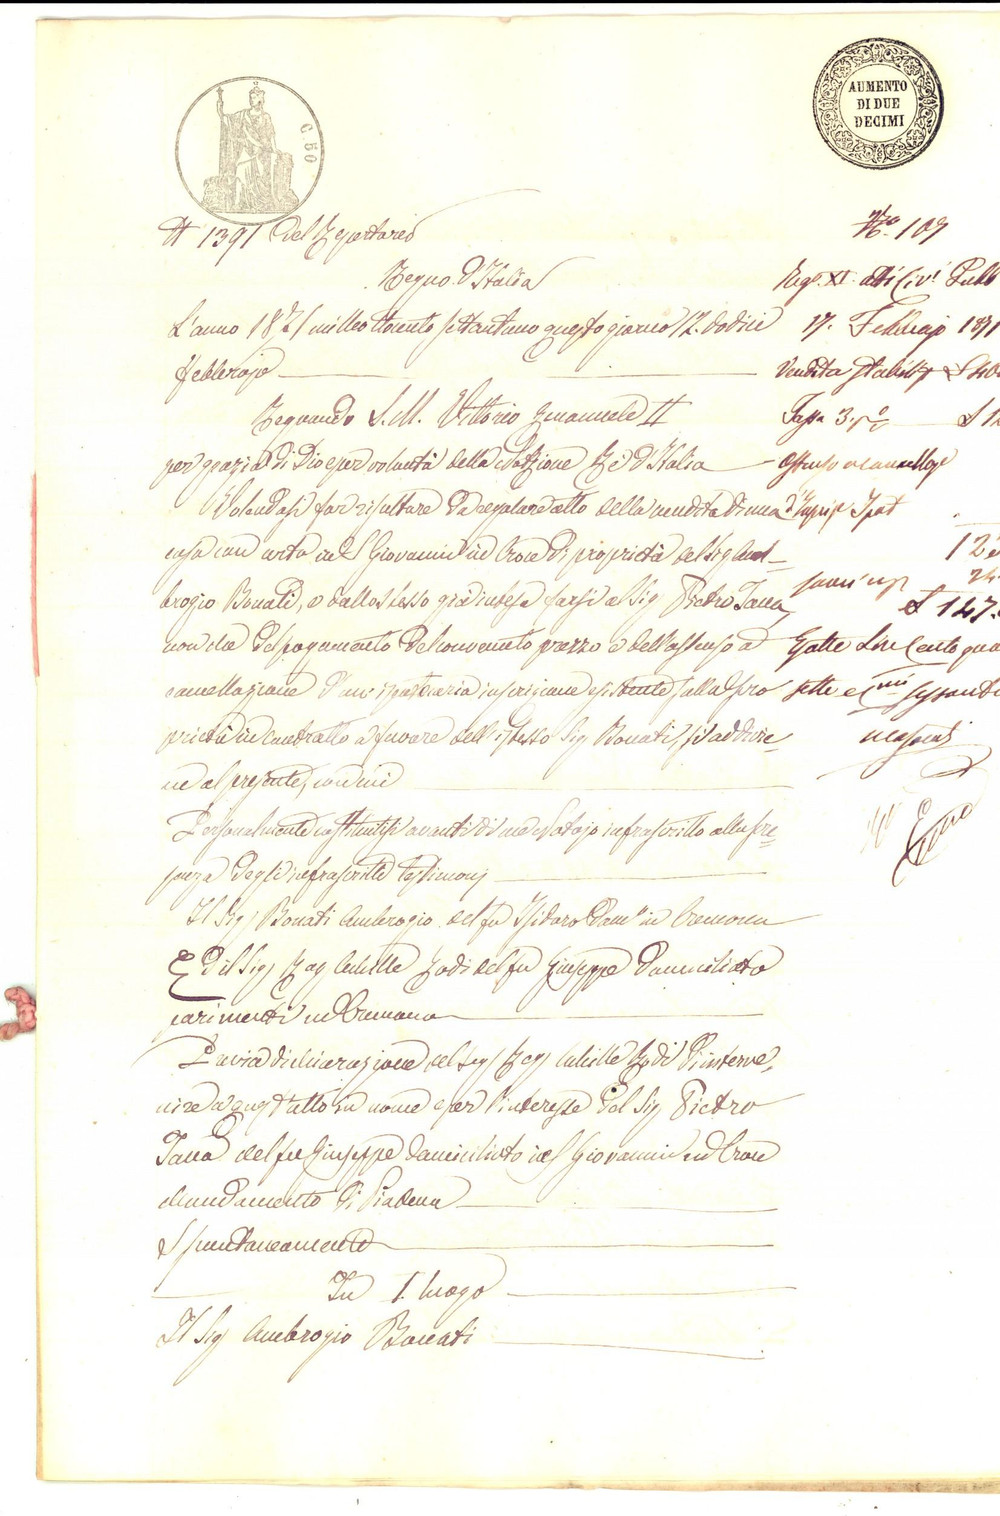 C. 50
AUMENTO
DI DUE
DECIMI
N 1391 del Repertorio
Regno d'Italia
L'anno 1871 mille ottocento settantuno questo giorno 12. dodici
Febbrajo
Regnando S. M. Vittorio Emanuele II
per grazia di Dio e per volontà della Nazione Re d'Italia
Volendosi far risultare da regolare atto della vendita di una
casa con orto in S Giovanni in Croce di proprietà del Sig Am-
brogio Bonati, e dallo stesso già intesa farsi al Sig Pietro Tana,
non che del pagamento del convenuto prezzo e dell'assenso a
cancellazione d'una ipotecaria inscrizione esistente sulla pro
prietà in contratto a favore dell'istesso Sig Bonati, si addivie-
ne al presente, con cui
Personalmente costituitisi avanti di me Notajo infrascritto alla pre-
senza degli infrascritti testimonj
Il Sig Bonati Ambrogio del fu Isidoro Dom° in Cremona
Ed il Sig Rag Achille Rodi del fu Giuseppe Domiciliato
parimenti in Cremona
Previa dichiarazione del Sig Rag Achille Rodi d'interve-
nire a quest'atto in nome e per l'interesse del Sig Pietro
Tana del fu Giuseppe domiciliato in S Giovanni in Croce
Mandamento di Piadena
Spontaneamente
In 1. luogo
Il Sig Ambrogio Bonati
N° 109
Reg. XI. atti Civi Pubb
17. Febbrajo 1871
Vendita stabili
Tassa 3.
Assenso a cancellaz
d'Inscriz Ipot
147.
Esatte Lire Cento qua
sette e Cmi sessanta